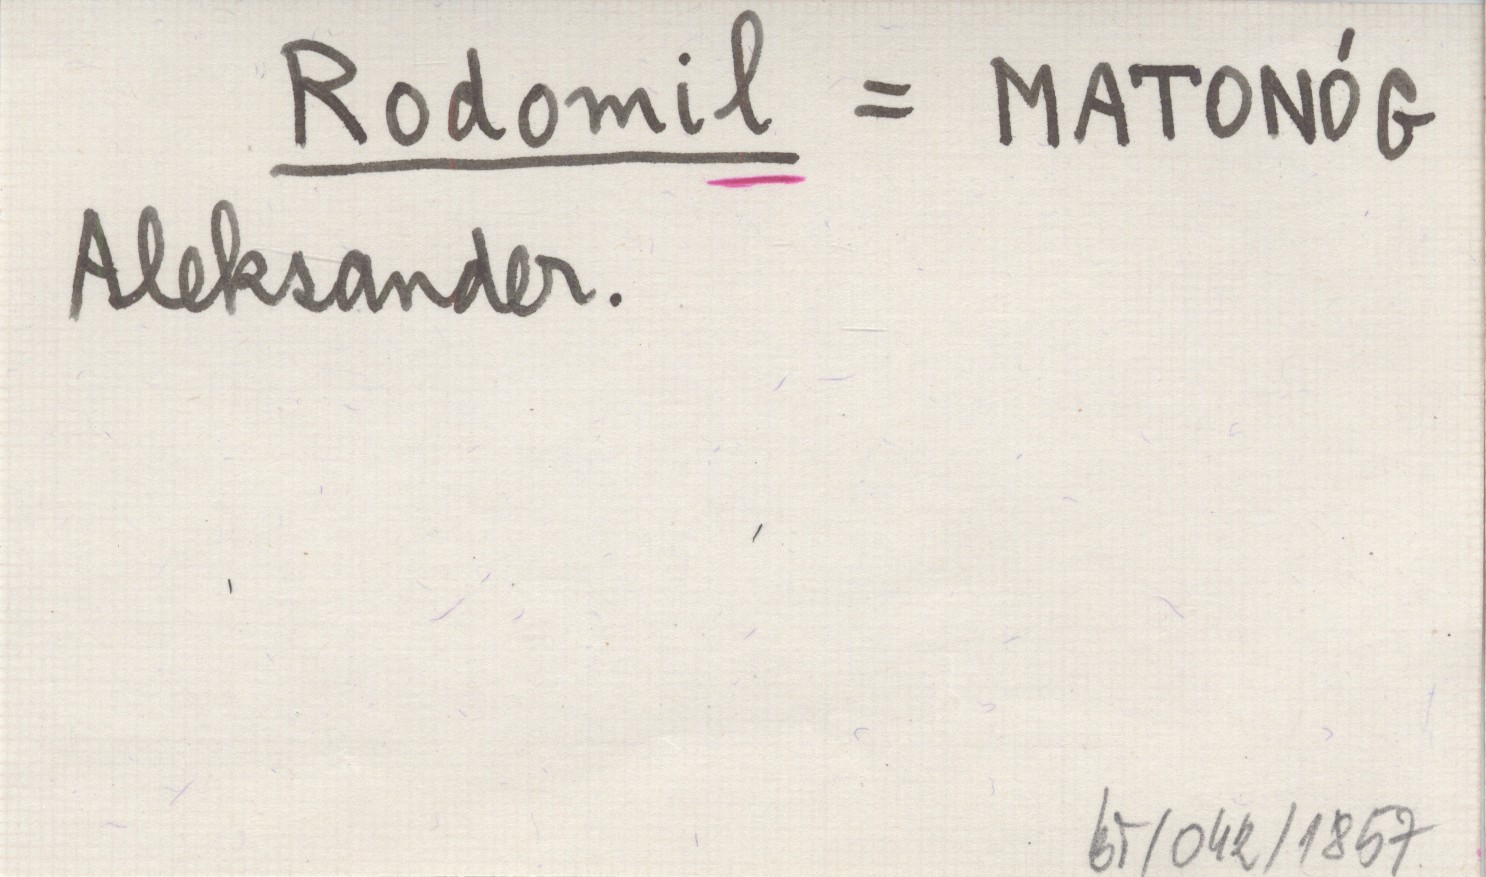 Rodomil = MATONÓG
Aleksander.
/042/1857